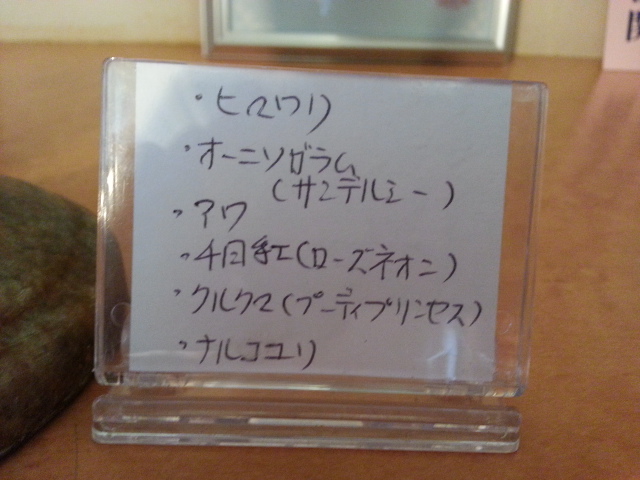 ・ヒマワリ
・オーニソガラム
(サンデルシー)
・アワ
・千日紅(ローズネオン)
・クルクマ(プーディプリンセス)
・ナルコユリ